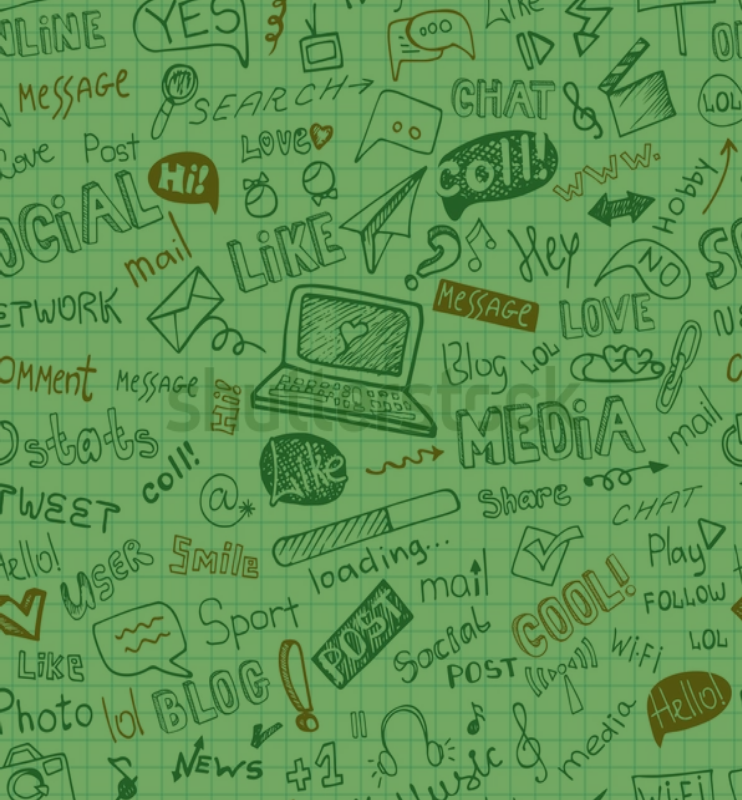 NLINE
YES
Like
MESSAGE
SEARCH
CHAT
LOL
Love
Post
Hi!
Love
coll!
www.
Hobby
OCIAL
mail
LIKE
Hey
NO
ETWORK
MESSAGE
LOVE
OMMENT
MESSAGE
Hi!
Blog
LOL
shutterstock
stats
coll!
Like
MEDIA
mail
TWEET
@
Share
CHAT
Hello!
USER
Smile
loading...
mail
Play
COOL!
FOLLOW
Sport
POST
Social
POST
Wi-Fi
LOL
Like
Photo
lol
BLOG
Hello!
media
NEWS
+1
Music
WiFi